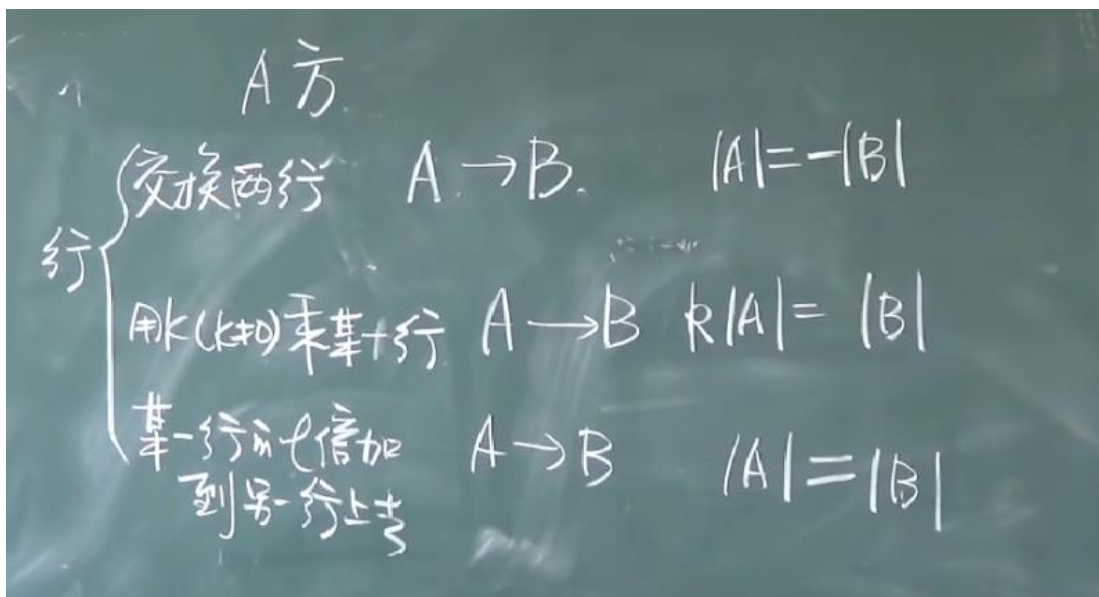 A方
行
交换两行 A→B |A|=-|B|
用k(k≠0)乘某一行 A→B k|A|=|B|
某一行的t倍加 A→B |A|=|B|
到另一行上去